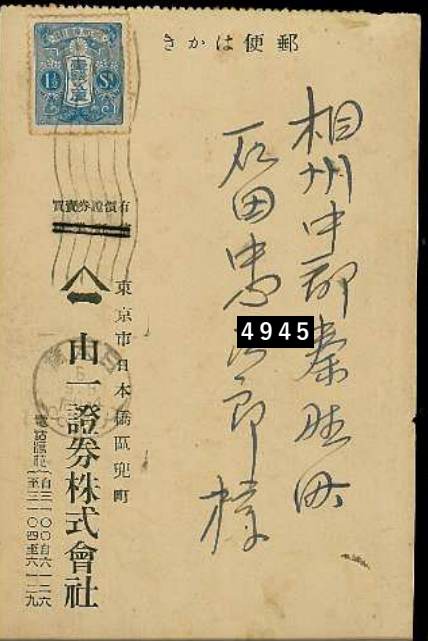 郵便はがき
相州中郡秦野町
石田忠治郎様
4945
1½ Sn
有價證券賣買
東京市日本橋區兜町
山一證券株式會社
電話浪花
自三一〇〇至三一〇四
自六一二六至六一二九